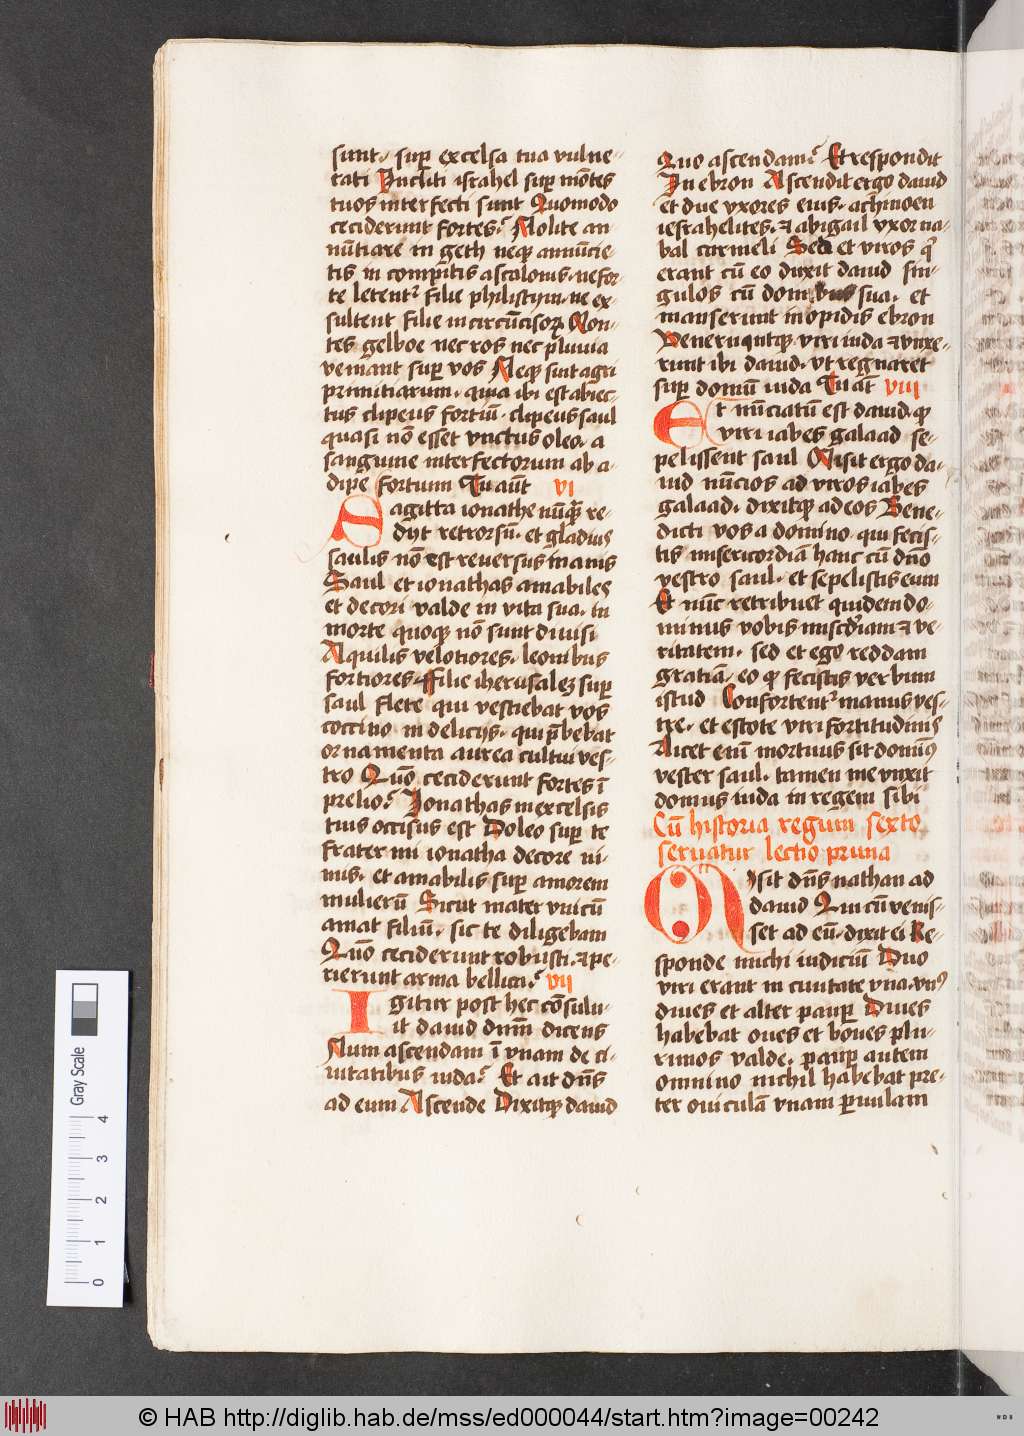 sunt. sup̱ excelsa tua vulne-
rati Incliti israhel sup̱ mōtes
tuos interfecti sunt Quomodo
ceciderunt fortes? Nolite an-
nūtiare in geth neqꝫ annūcie-
tis in comp̄itis ascalonis. ne for-
te letent᷑ filie philistijm. ne ex-
sultent filie incircūcisoꝝ Mon-
tes gelboe nec ros nec pluuia
veniant sup̱ vos Neqꝫ sint agri
primitiarum. quia ibi est abiec-
tus clipeus fortiū. clipeus saul
quasi nō esset vnctus oleo. a
sanguine interfectorum ab a-
dipe fortium Tu aūt vi
Sagitta ionathe nūq̄ȝ re-
dijt retrorsū. et gladius
saulis nō est reuersus inanis
Saul et ionathas amabiles
et decori valde in vita sua. in
morte quoqꝫ nō sunt diuisi
Aquilis velotiores. leonibus
fortiores. Filie iherusalez sup̱
saul flete qui vestiebat vos
coccino in delicijs. qui p̄bebat
ornamenta aurea cultui ves-
tro Quō ceciderunt fortes ī
prelio? Jonathas in excelsis
tuis occisus est Doleo sup̱ te
frater mi ionatha decore ni-
mis. et amabilis sup̱ amorem
mulierū Sicut mater vnicū
amat filiū. sic te diligebam
Quō ceciderunt robusti. ⁊ pe-
rierunt arma bellica? vij
Igitur post hec cōsulu-
it dauid dnm̄ dicens
Num ascendam ī vnam de ci-
uitatibus iuda? Et ait dn̄s
ad eum Ascende Dixitqꝫ dauid
Quo ascendam? Et respondit
In ebron Ascendit ergo dauid
et due vxores eius. achinoen
iesrahelites. ⁊ abigail vxor na-
bal carmeli Sed et viros q̇
erant cū eo duxit dauid sin-
gulos cū domibus sua. et
manserunt in opidis ebron
Veneruntqꝫ viri iuda ⁊ vnxe-
runt ibi dauid. vt regnaret
sup̱ domū iuda Tu aūt viij
Et nūciatū est dauid. qꝫ
viri iabes galaad se-
pelissent saul Misit ergo da-
uid nūcios ad viros iabes
galaad. dixitqꝫ ad eos Bene-
dicti vos a domino. qui fecis-
tis misericordiā hanc cū dn̄o
vestro saul. et sepelistis eum
Et nūc retribuet quidem do-
minus vobis misc̄diam ⁊ ve-
ritatem. sed et ego reddam
gratiā. eo qꝫ fecistis verbum
istud Confortent᷑ manus ves-
tre. et estote viri fortitudinis
Licet enī mortuus sit domin⁹
vester saul. tamen me vnxit
domus iuda in regem sibi
Cū historia regum sexto
seruatur lectio prima
Misit dn̄s nathan ad
dauid Qui cū venis-
set ad eū. dixit ei Re-
sponde michi iudiciū Duo
viri erant in ciuitate vna. vn⁹
diues et alter paup̱ Diues
habebat oues et boues plu-
rimos valde. paup̱ autem
omnino nichil habebat pre-
ter ouiculā vnam paruulam
Gray Scale
0 1 2 3 4
© HAB http://diglib.hab.de/mss/ed000044/start.htm?image=00242